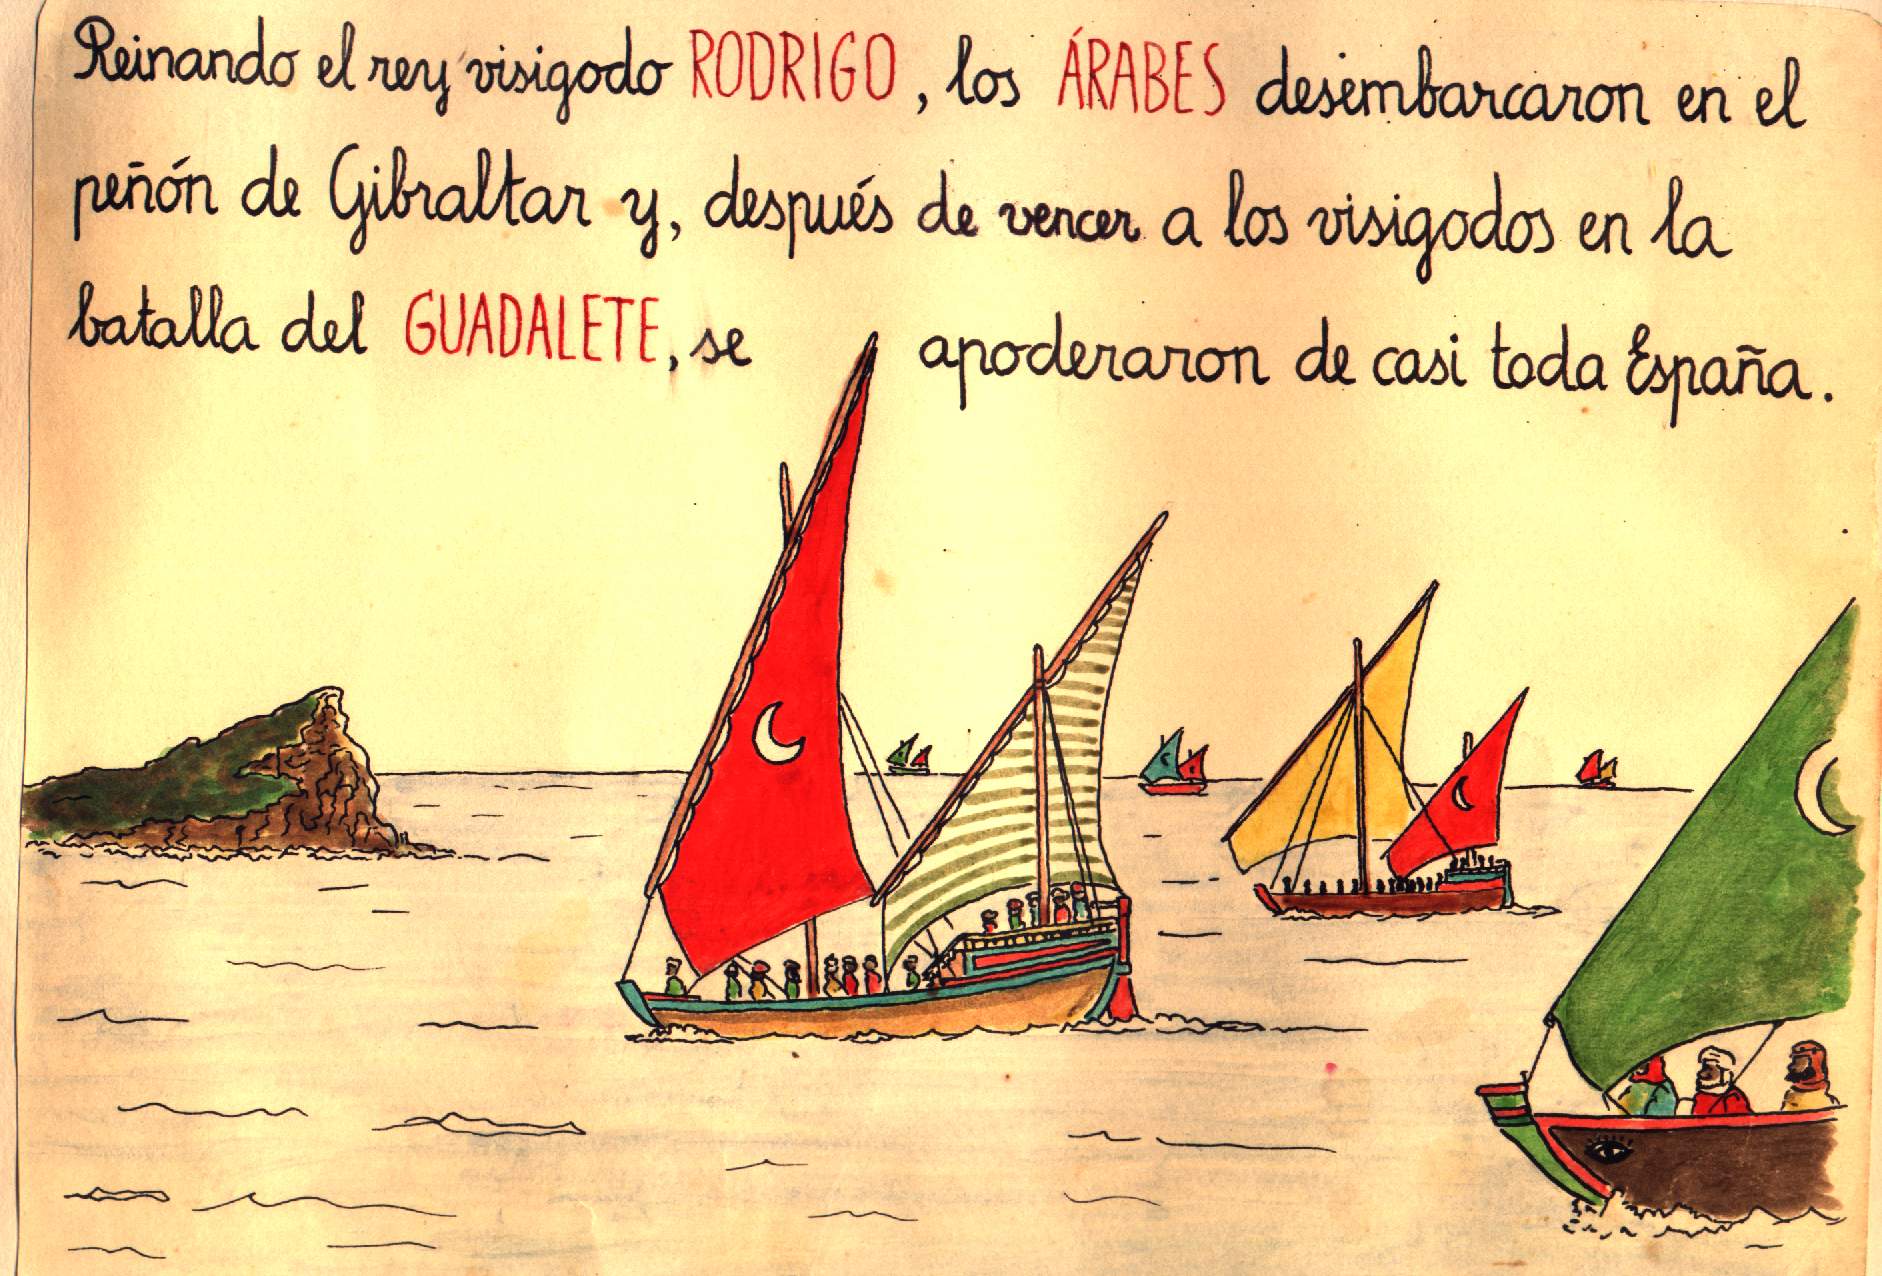 Reinando el rey visigodo RODRIGO, los ÁRABES desembarcaron en el
peñón de Gibraltar y, después de vencer a los visigodos en la
batalla del GUADALETE, se apoderaron de casi toda España.